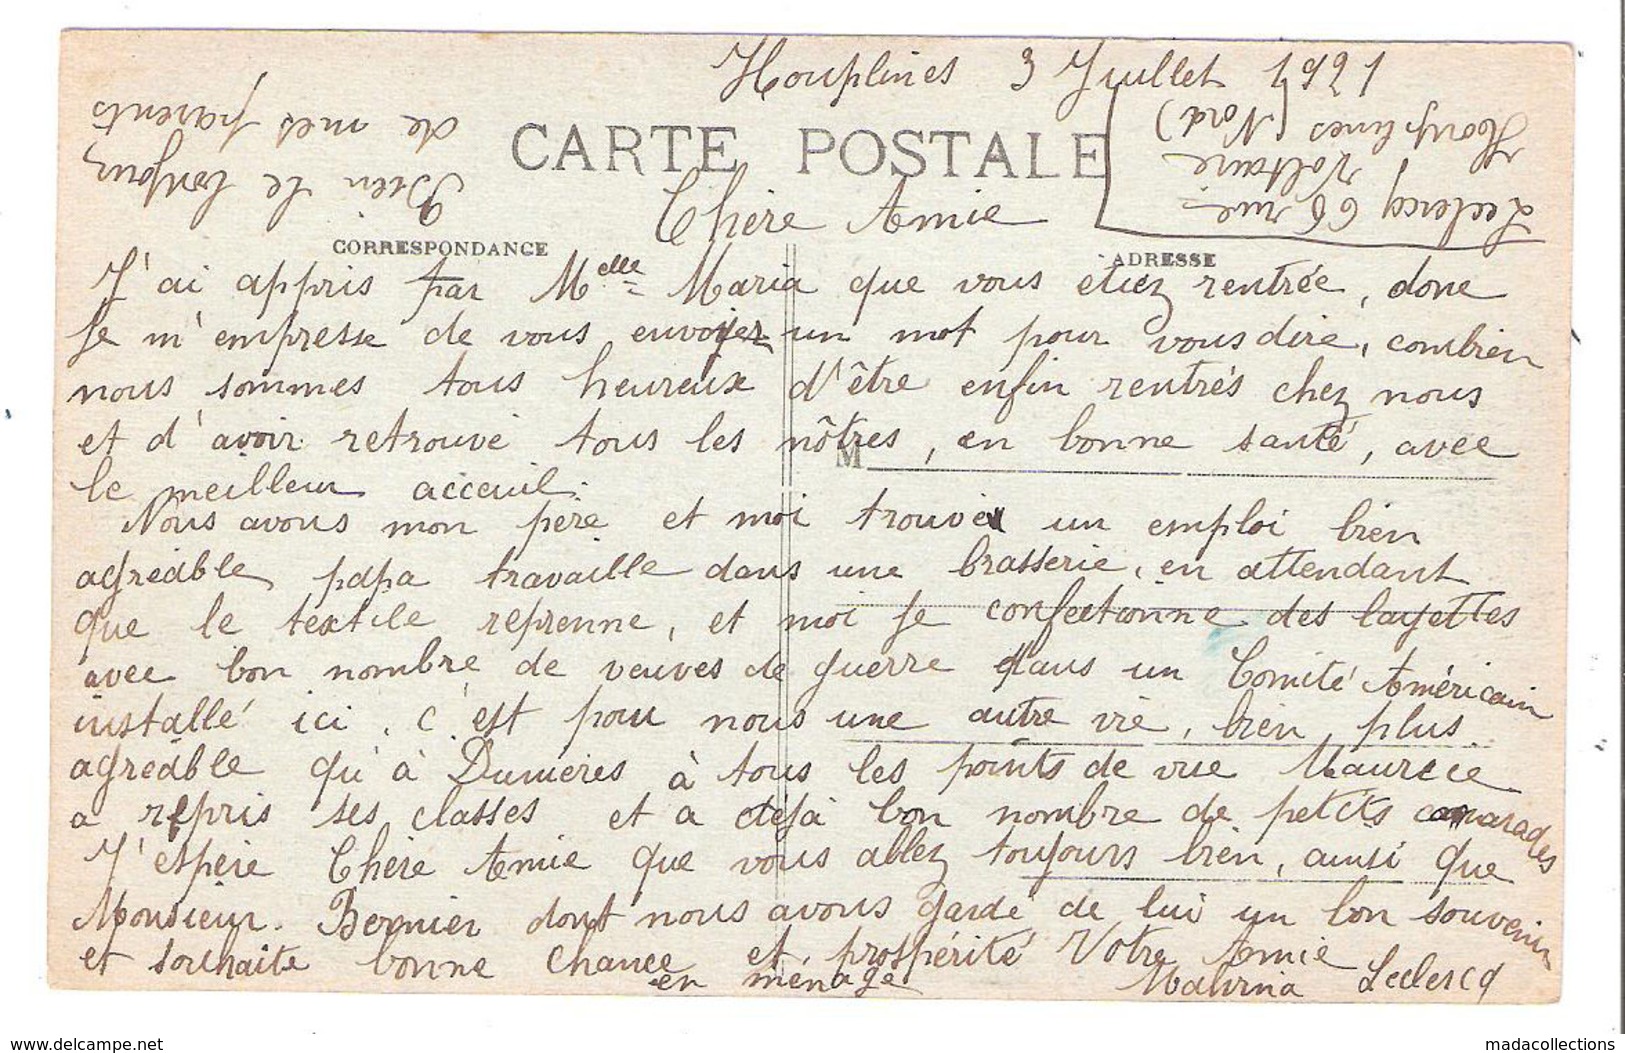 Houplines 3 Juillet 1921
Leclercq 66 rue
Voltaire
Houplines (Nord)
Bien le bonjour
de mes parents
CARTE POSTALE
Chère Amie
CORRESPONDANCE
ADRESSE
J'ai appris par Melle Maria que vous étiez rentrée, donc
je m'empresse de vous envoyer un mot pour vous dire, combien
nous sommes tous heureux d'être enfin rentrés chez nous
et d'avoir retrouvé tous les nôtres, en bonne santé, avec
M
le meilleur acceuil.
Nous avons mon père et moi trouvé un emploi bien
agréable, papa travaille dans une brasserie, en attendant
que le textile reprenne, et moi je confectionne des layettes
avec bon nombre de veuves de guerre dans un Comité Américain
installé ici, c'est pour nous une autre vie, bien plus
agréable qu'à Dunières à tous les points de vue Maurice
a repris ses classes et a déjà bon nombre de petits camarades
J'espère Chère Amie que vous allez toujours bien, ainsi que
Monsieur. Bernier dont nous avons gardé de lui un bon souvenir
et souhaite bonne chance et prospérité Votre Amie
en ménage Malvina Leclercq
www.delcampe.net
madacollections